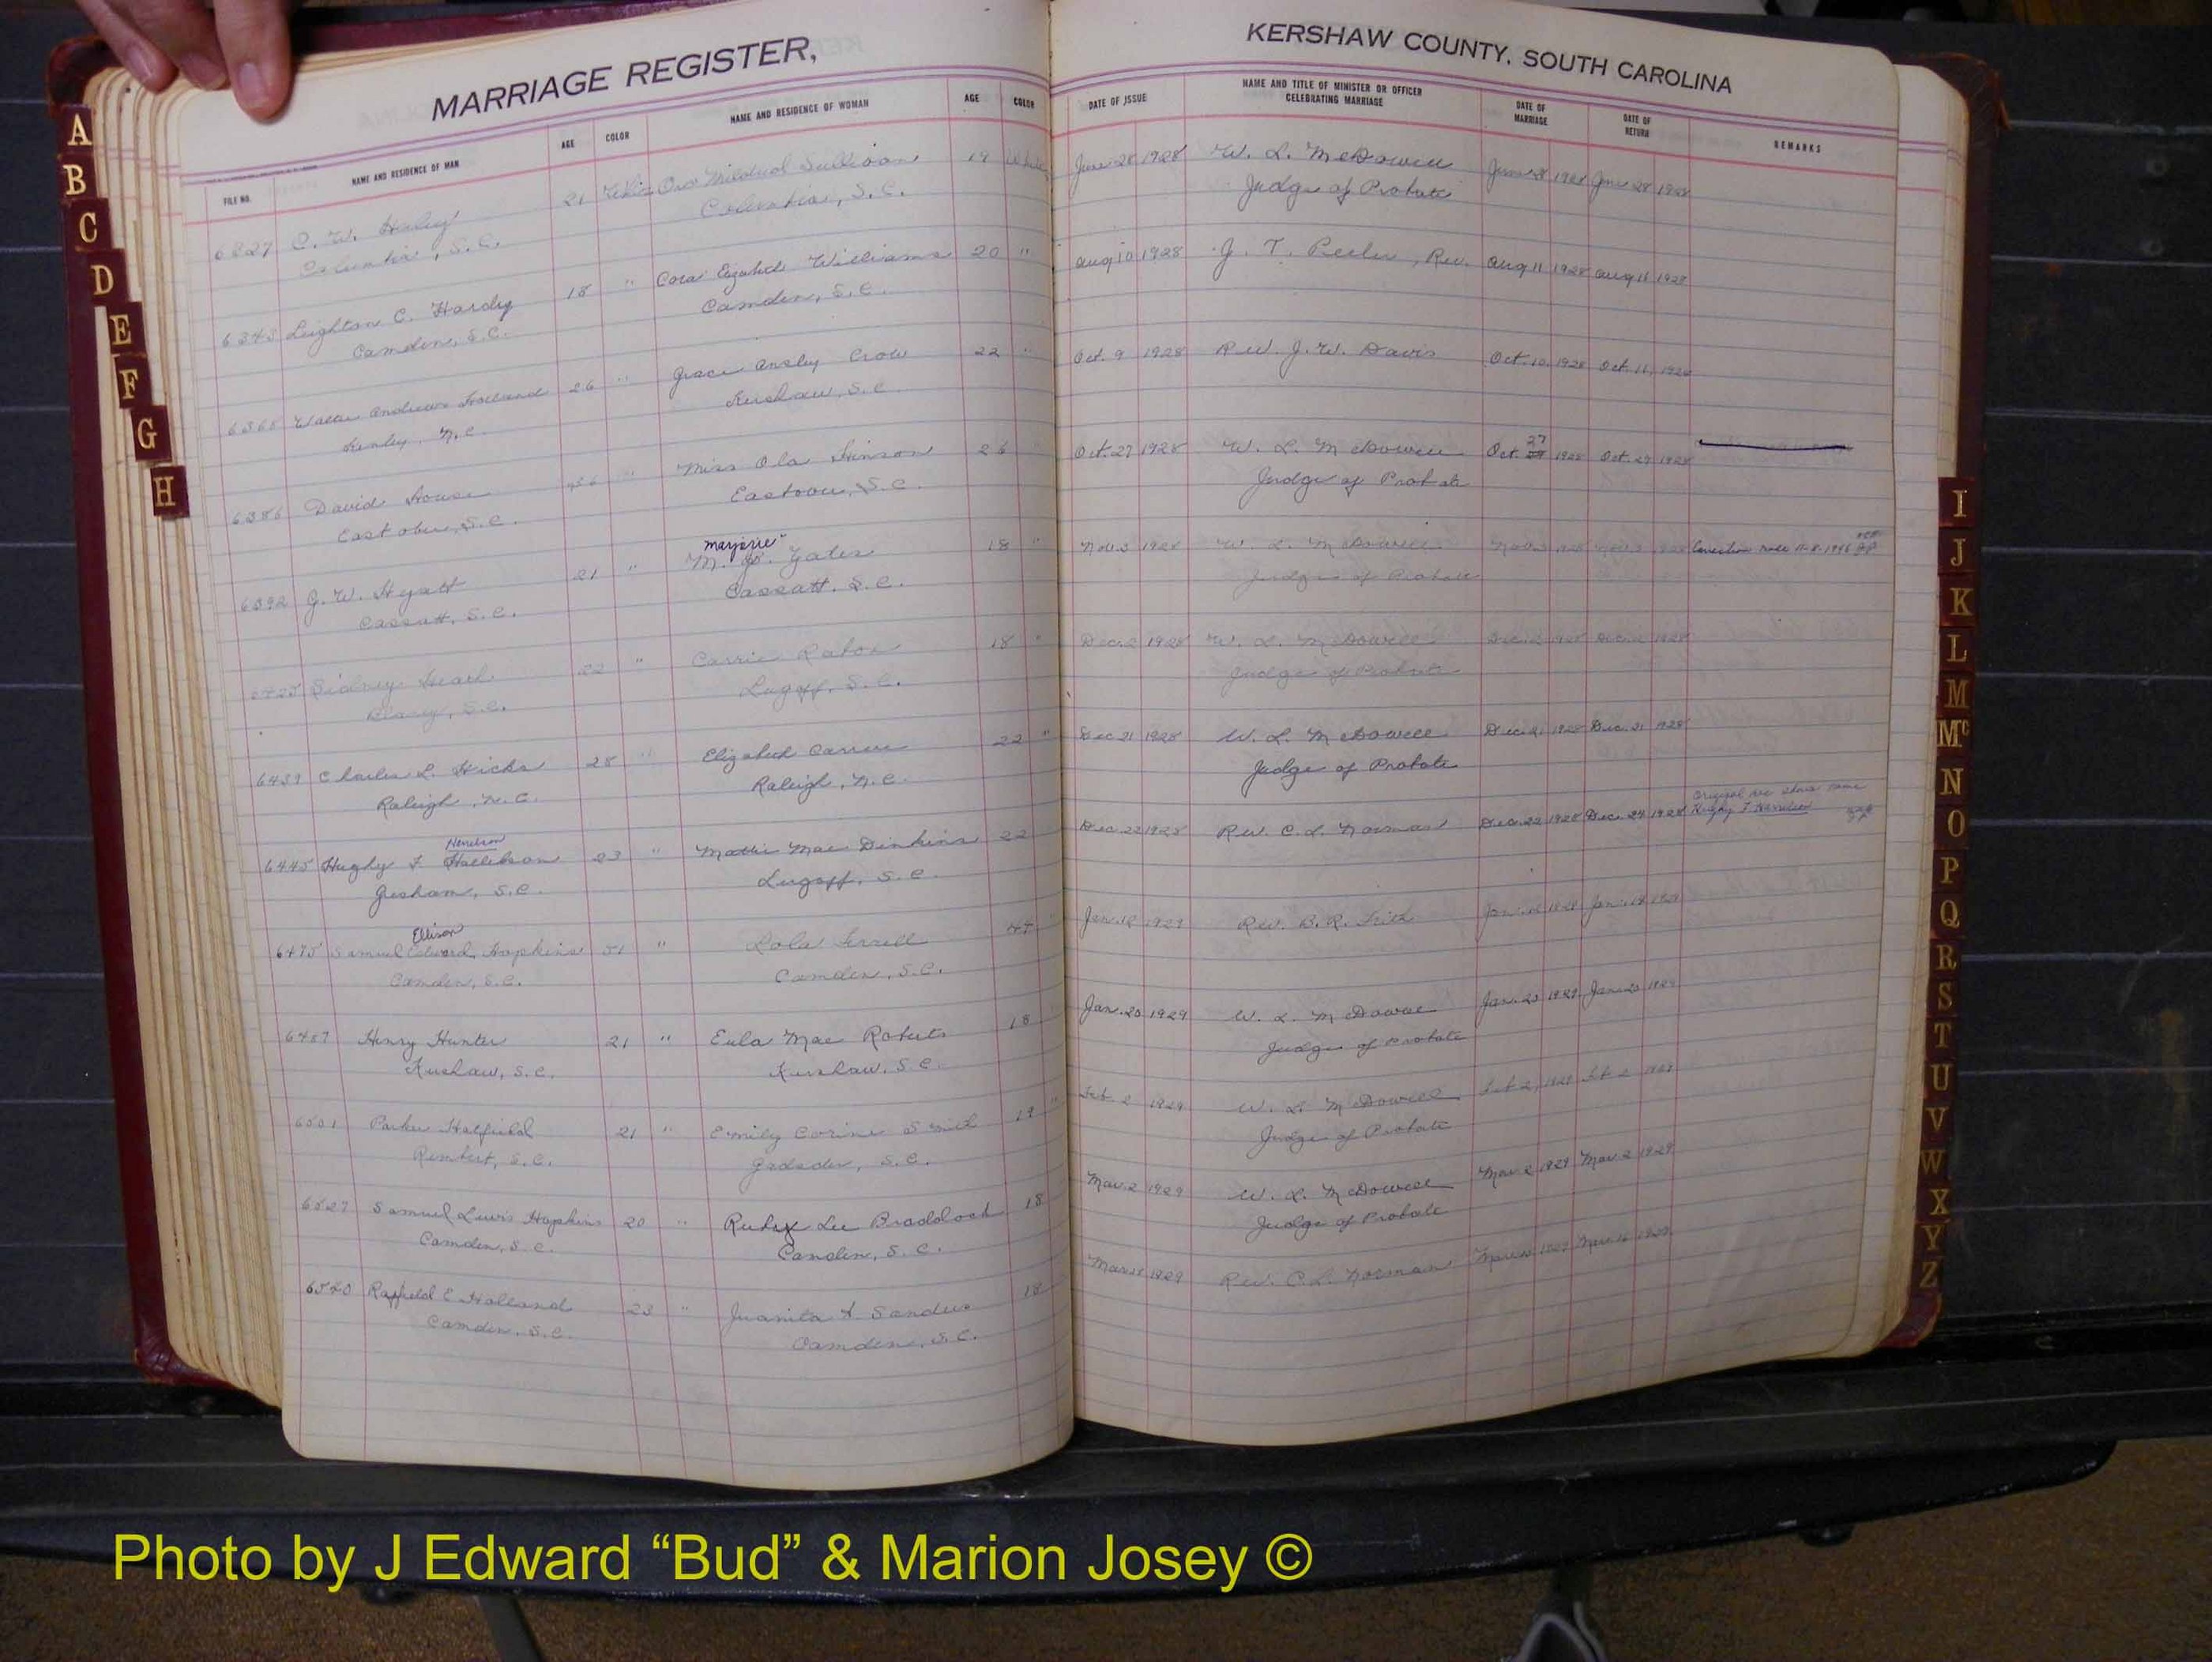 MARRIAGE REGISTER,
FILE NO. NAME AND RESIDENCE OF MAN AGE COLOR NAME AND RESIDENCE OF WOMAN AGE COLOR
6327 C. W. 21 White Mildred Sullivan 19 White
Columbia, S.C. Columbia, S.C.
6343 Leighton C. Hardy 18 " Cora Elizabeth Williams 20 "
Camden, S.C. Camden, S.C.
6368 Walter Andrews Holland 26 " Grace Ansley Crow 22 "
Kenly, N.C. Kershaw, S.C.
6386 David House " Miss Ola Hinson 26 "
Eastover, S.C. Eastover, S.C.
Marjorie
6392 G. W. Hyatt 21 " M. Yates 18 "
Cassatt, S.C. Cassatt, S.C.
6425 Sidney 22 " Carrie 18 "
Blaney, S.C. Lugoff, S.C.
6439 Charles L. Hicks 28 " Elizabeth 22 "
Raleigh, N.C. Raleigh, N.C.
6445 Hughy F. 23 " Mattie Mae Dinkins 22
Gresham, S.C. Lugoff, S.C.
Ellison
6475 Samuel Edward Hopkins 51 " Lola 44 "
Camden, S.C. Camden, S.C.
6487 Henry Hunter 21 " Eula Mae Roberts 18 "
Kershaw, S.C. Kershaw, S.C.
6501 Parker Hatfield 21 " Emily Corine Smith 19 "
Rembert, S.C. Gadsden, S.C.
6527 Samuel Lewis Hopkins 20 " Ruby Lee Braddock 18
Camden, S.C. Camden, S.C.
6540 Rayfield E Holland 23 " Juanita A. Sanders 18
Camden, S.C. Camden, S.C.
KERSHAW COUNTY, SOUTH CAROLINA
DATE OF ISSUE NAME AND TITLE OF MINISTER OR OFFICER CELEBRATING MARRIAGE DATE OF MARRIAGE DATE OF RETURN REMARKS
June 28 1928 W. L. McDowell June 28 1928 June 28 1928
Judge of Probate
Aug 10 1928 J. T. Peeler, Rev. Aug 11 1928 Aug 11 1928
Oct. 9 1928 Rev. J. W. Davis Oct. 10, 1928 Oct. 11, 1928
Oct. 27 1928 W. L. McDowell Oct. 27 1928 Oct. 27 1928
Judge of Probate
Nov. 3 1928 W. L. McDowell Nov. 3 1928 Nov. 3 1928 Correction made
Judge of Probate
Dec. 2 1928 W. L. McDowell Dec. 2 1928 Dec. 2 1928
Judge of Probate
Dec 21 1928 W. L. McDowell Dec. 21 1928 Dec. 21 1928
Judge of Probate
Dec. 22 1928 Rev. C. L. Norman Dec. 22 1928 Dec. 24 1928 Original rec shows name
Jan. 12 1929 Rev. B. R. Jan. 1929 Jan. 14 1929
Jan. 20 1929 W. L. McDowell Jan. 20 1929 Jan. 20 1929
Judge of Probate
Feb. 2 1929 W. L. McDowell Feb 2, 1929 Feb 2 1929
Judge of Probate
Mar. 2 1929 W. L. McDowell Mar 2 1929 Mar 2 1929
Judge of Probate
Mar 1929 Rev. C. L. Norman Mar 1929 Mar. 16 1929
A
B
C
D
E
F
G
H
I
J
K
L
M
Mc
N
O
P
Q
R
S
T
U
V
W
X
Y
Z
Photo by J Edward “Bud” & Marion Josey ©